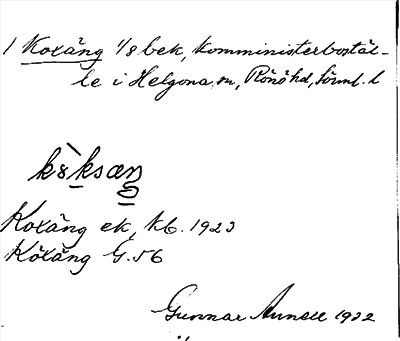 1 Koxäng 1/8 bek, komministerbostäl-
le i Helgona sn, Rönö hd, Sörml. l
kꞷ̀ksæŋ
Koxäng ek, kb. 1923
Koxäng G. 56
Gunnar Arnell 1932